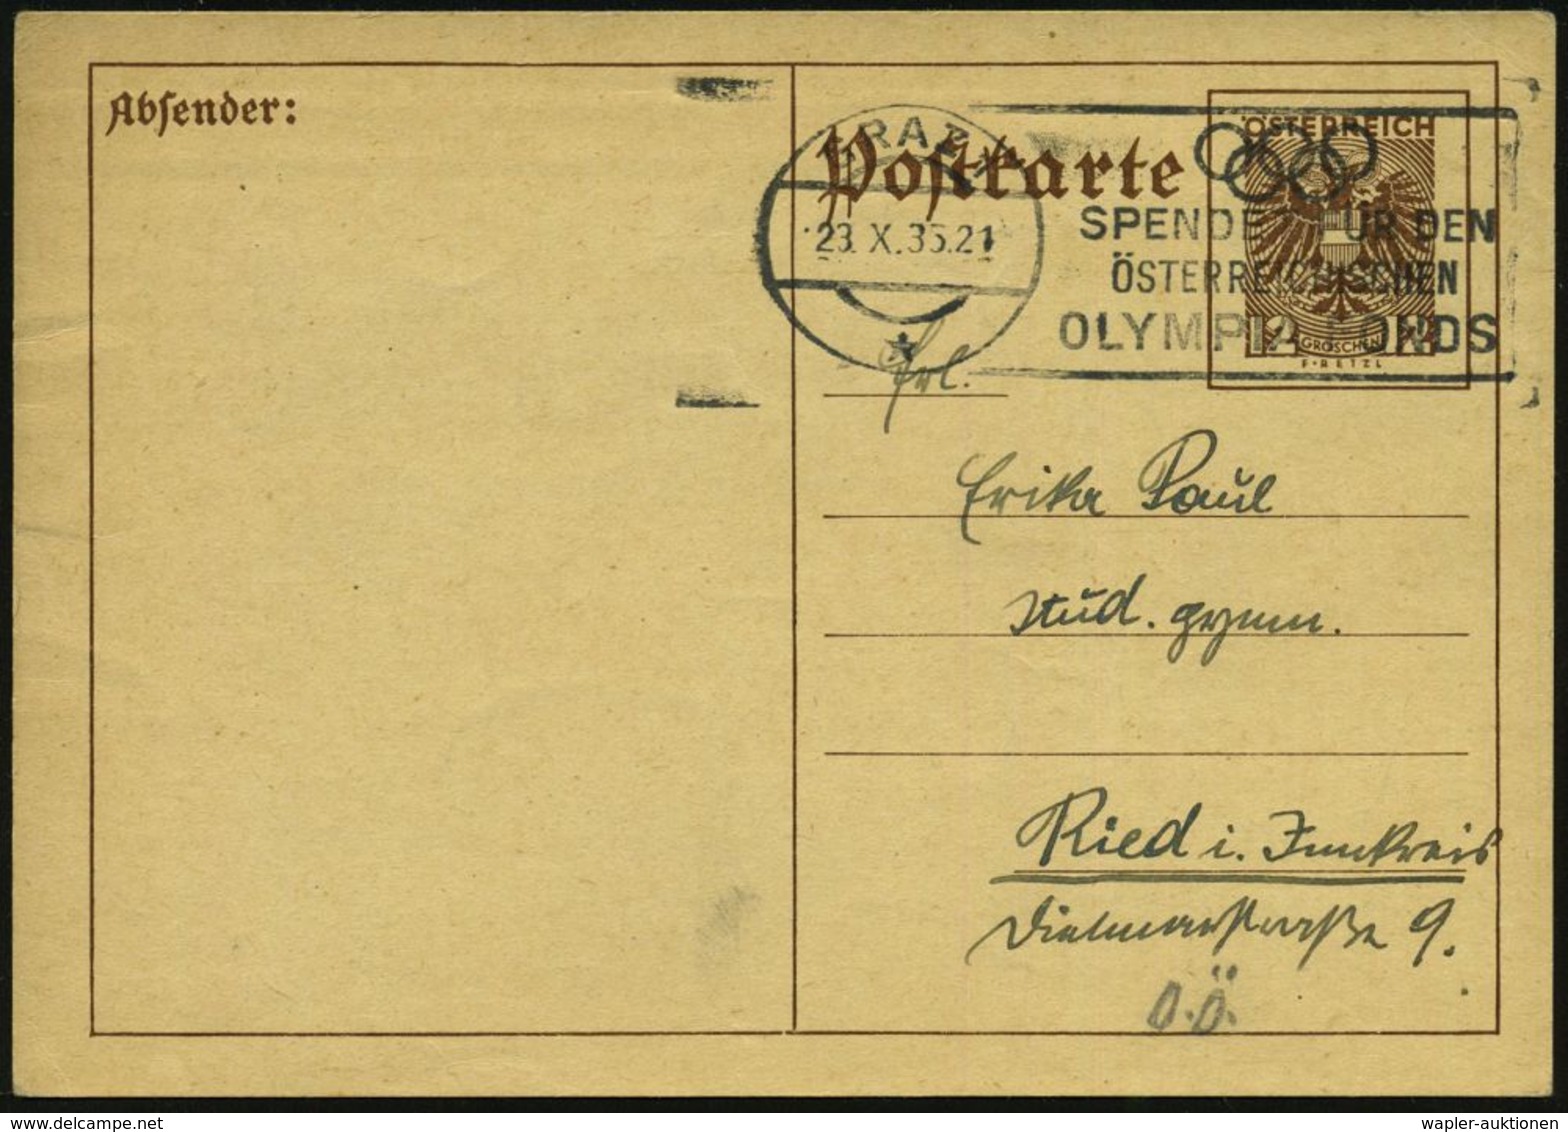 Absender:
Postkarte
ÖSTERREICH
GRAZ 1
23.X.35.21
SPENDET FÜR DEN
ÖSTERREICHISCHEN
OLYMPIA FONDS
12 GROSCHEN 12
F·RETZL
Frl.
Erika Paul
stud. gymn.
Ried i. Innkreis
Dietmarstraße 9.
O.Ö.
wapler-auktionen